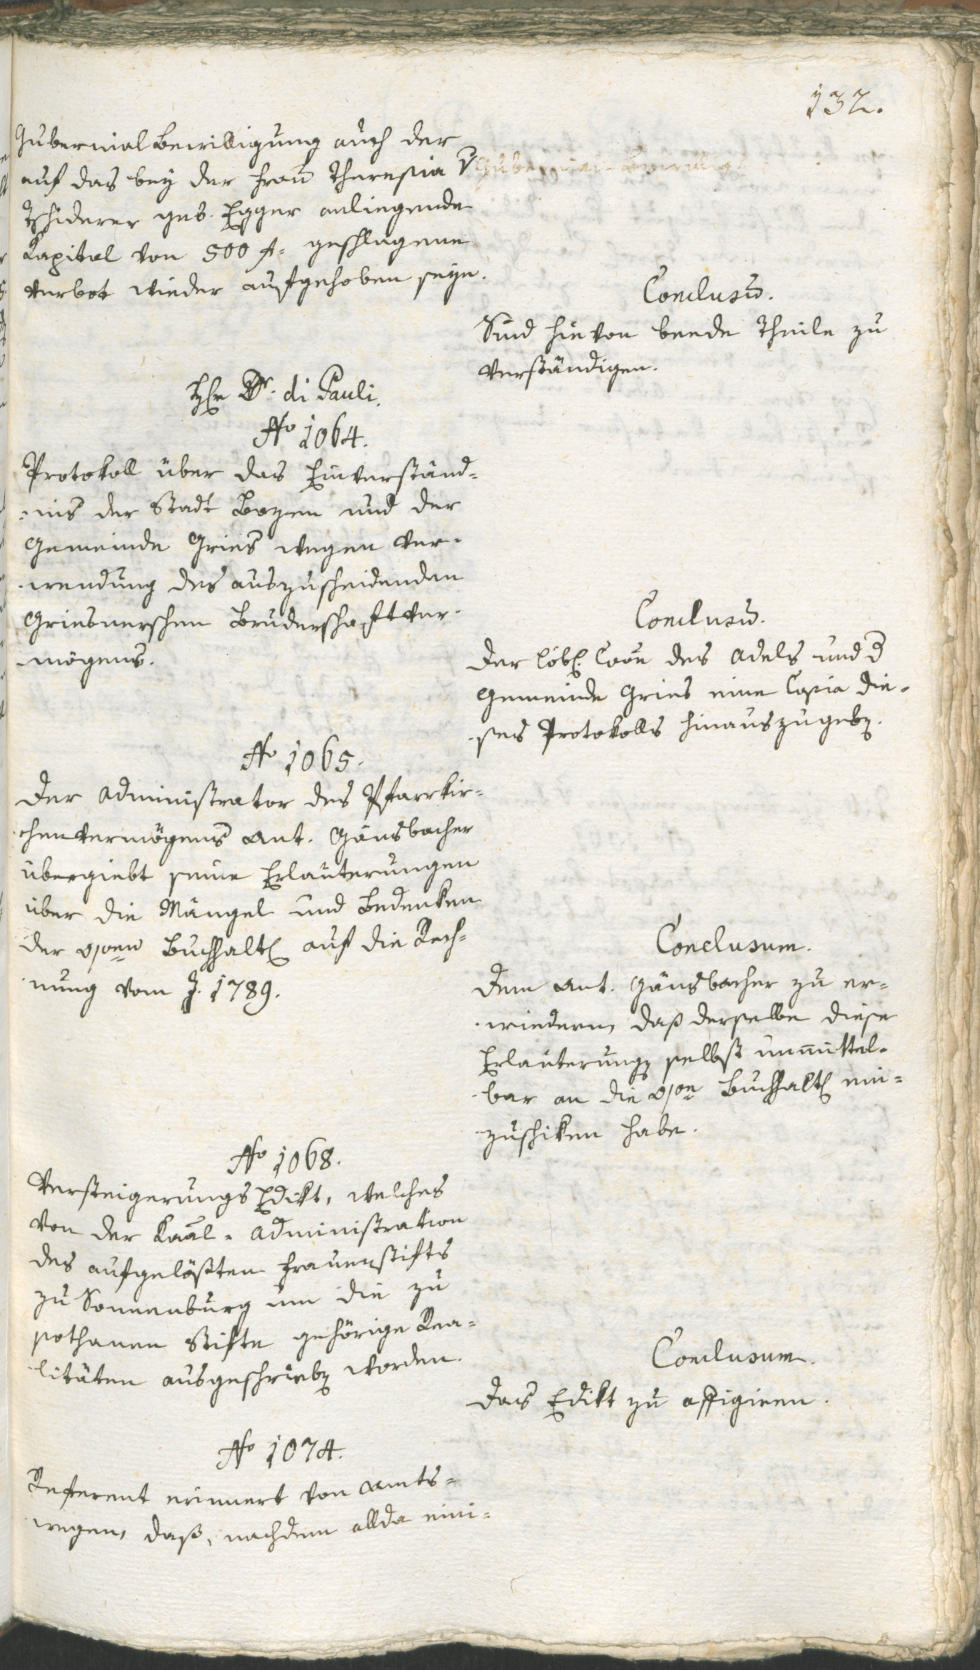 132.
Gubernial Bewilligung auch der
auf das bey der Frau Theresia v
Tschiderer geb. Egger anliegende
Kapital von 500 f. geschlagene
Verbot wieder aufgehoben seye.
Conclusū.
Sind hievon beede Theile zu
verständigen.
Hr Dr. di Pauli.
No 1064.
Protokoll über das Einverständ=
=nis der Stadt Bozen und der
Gemeinde Gries wegen Ver=
=wendung des auszuscheidenden
Griesnerschen Bruderschaftver=
=mögens.
Conclusū.
Der löbl. Coõn des Adels und d
Gemeinde Gries eine Copia die=
=ses Protokolls hinauszugebn.
No 1065.
Der Administrator des Pfarrkir=
=chenvermögens Ant. Gänsbacher
übergiebt seine Erläuterungen
über die Mängel und Bedenken
der Buchhaltl auf die Rech=
=nung vom J. 1789.
Conclusum.
Dem Ant. Gänsbacher zu er=
=wiedern, daß derselbe diese
Erläuterungn selbst unmittel=
=bar an die Buchhaltl ein=
=zuschiken habe.
No 1068.
Versteigerungs Edikt, welches
von der Kaal=Administration
des aufgelößten Frauenstifts
zu Sonnenburg um die zu
sothanen Stifte gehörige Rea=
=litäten ausgeschriebn worden.
Conclusum.
Das Edikt zu affigiren.
No 1074.
Referent erinnert von Amts=
=wegen, daß, nachdem allda eini=